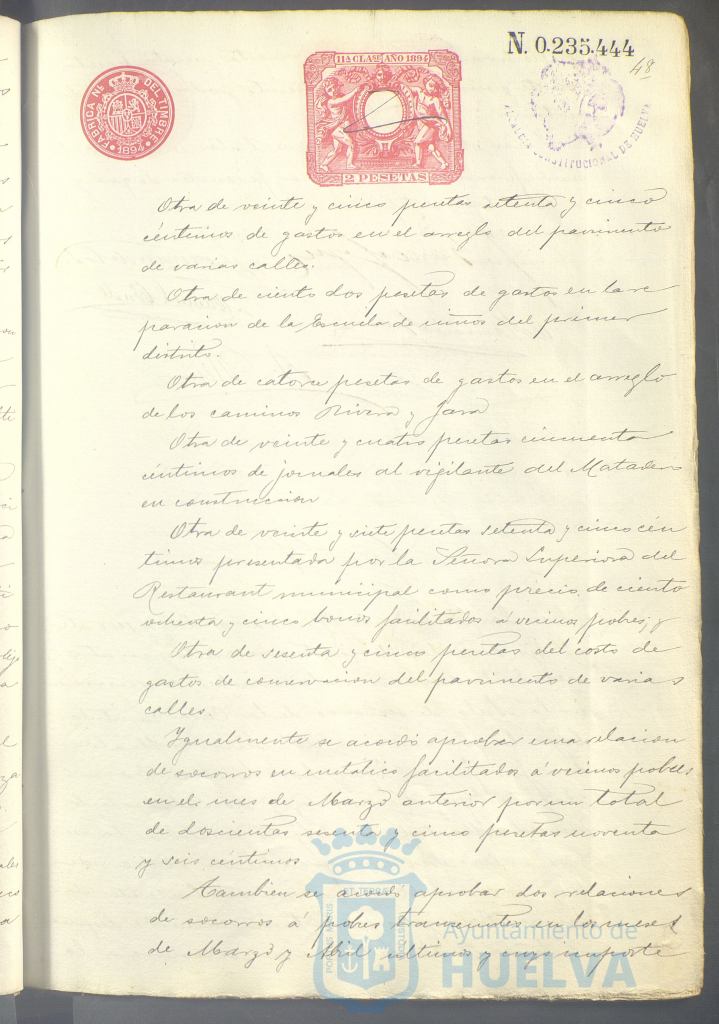 N. 0.235.444
48
FABRICA Nal DEL TIMBRE
1894
11ª CLASE AÑO 1894
2 PESETAS
CONSTITUCIONAL DE HUELVA
Otra de veinte y cinco pesetas setenta y cinco
céntimos de gastos en el arreglo del pavimento
de varias calles.
Otra de ciento dos pesetas de gastos en la re
paracion de la Escuela de niños del primer
distrito.
Otra de catorce pesetas de gastos en el arreglo
de los caminos Rivera y Jara
Otra de veinte y cuatro pesetas cincuenta
céntimos de jornales al vigilante del Matadero
en construccion
Otra de veinte y siete pesetas setenta y cinco cén
timos presentada por la Señora Superiora del
Restaurant municipal como precio de ciento
ochenta y cinco bonos facilitados á vecinos pobres, y
Otra de sesenta y cinco pesetas del costo de
gastos de conservacion del pavimento de varias
calles.
Igualmente se acordó aprobar una relacion
de socorros en metálico facilitados á vecinos pobres
en el mes de Marzo anterior por un total
de doscientas sesenta y cinco pesetas noventa
y seis céntimos
Tambien se acordó aprobar dos relaciones
de socorros á pobres transeuntes en los meses
de Marzo y Abril ultimos y cuyo importe
Ayuntamiento de
HUELVA